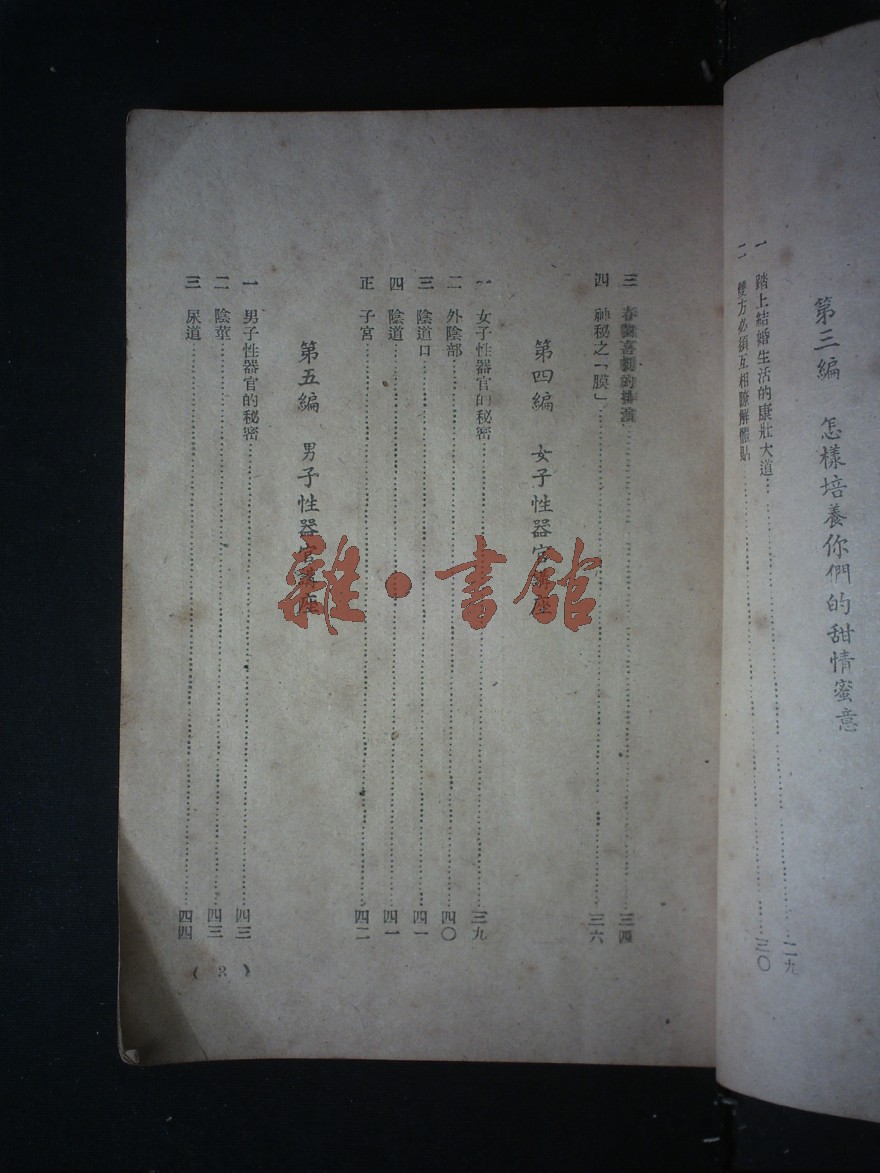 第三編　怎樣培養你們的甜情蜜意
一　踏上結婚生活的康壯大道…………二九
二　雙方必須互相瞭解體貼…………三〇
三　春…喜劇的排演…………三四
四　神秘之「膜」…………三六
第四編　女子性器官講座
一　女子性器官的秘密…………三九
二　外陰部…………四〇
三　陰道口…………四一
四　陰道…………四一
正　子宮…………四二
第五編　男子性器官講座
一　男子性器官的秘密…………四三
二　陰莖…………四三
三　尿道…………四四
(3)
雜·書館